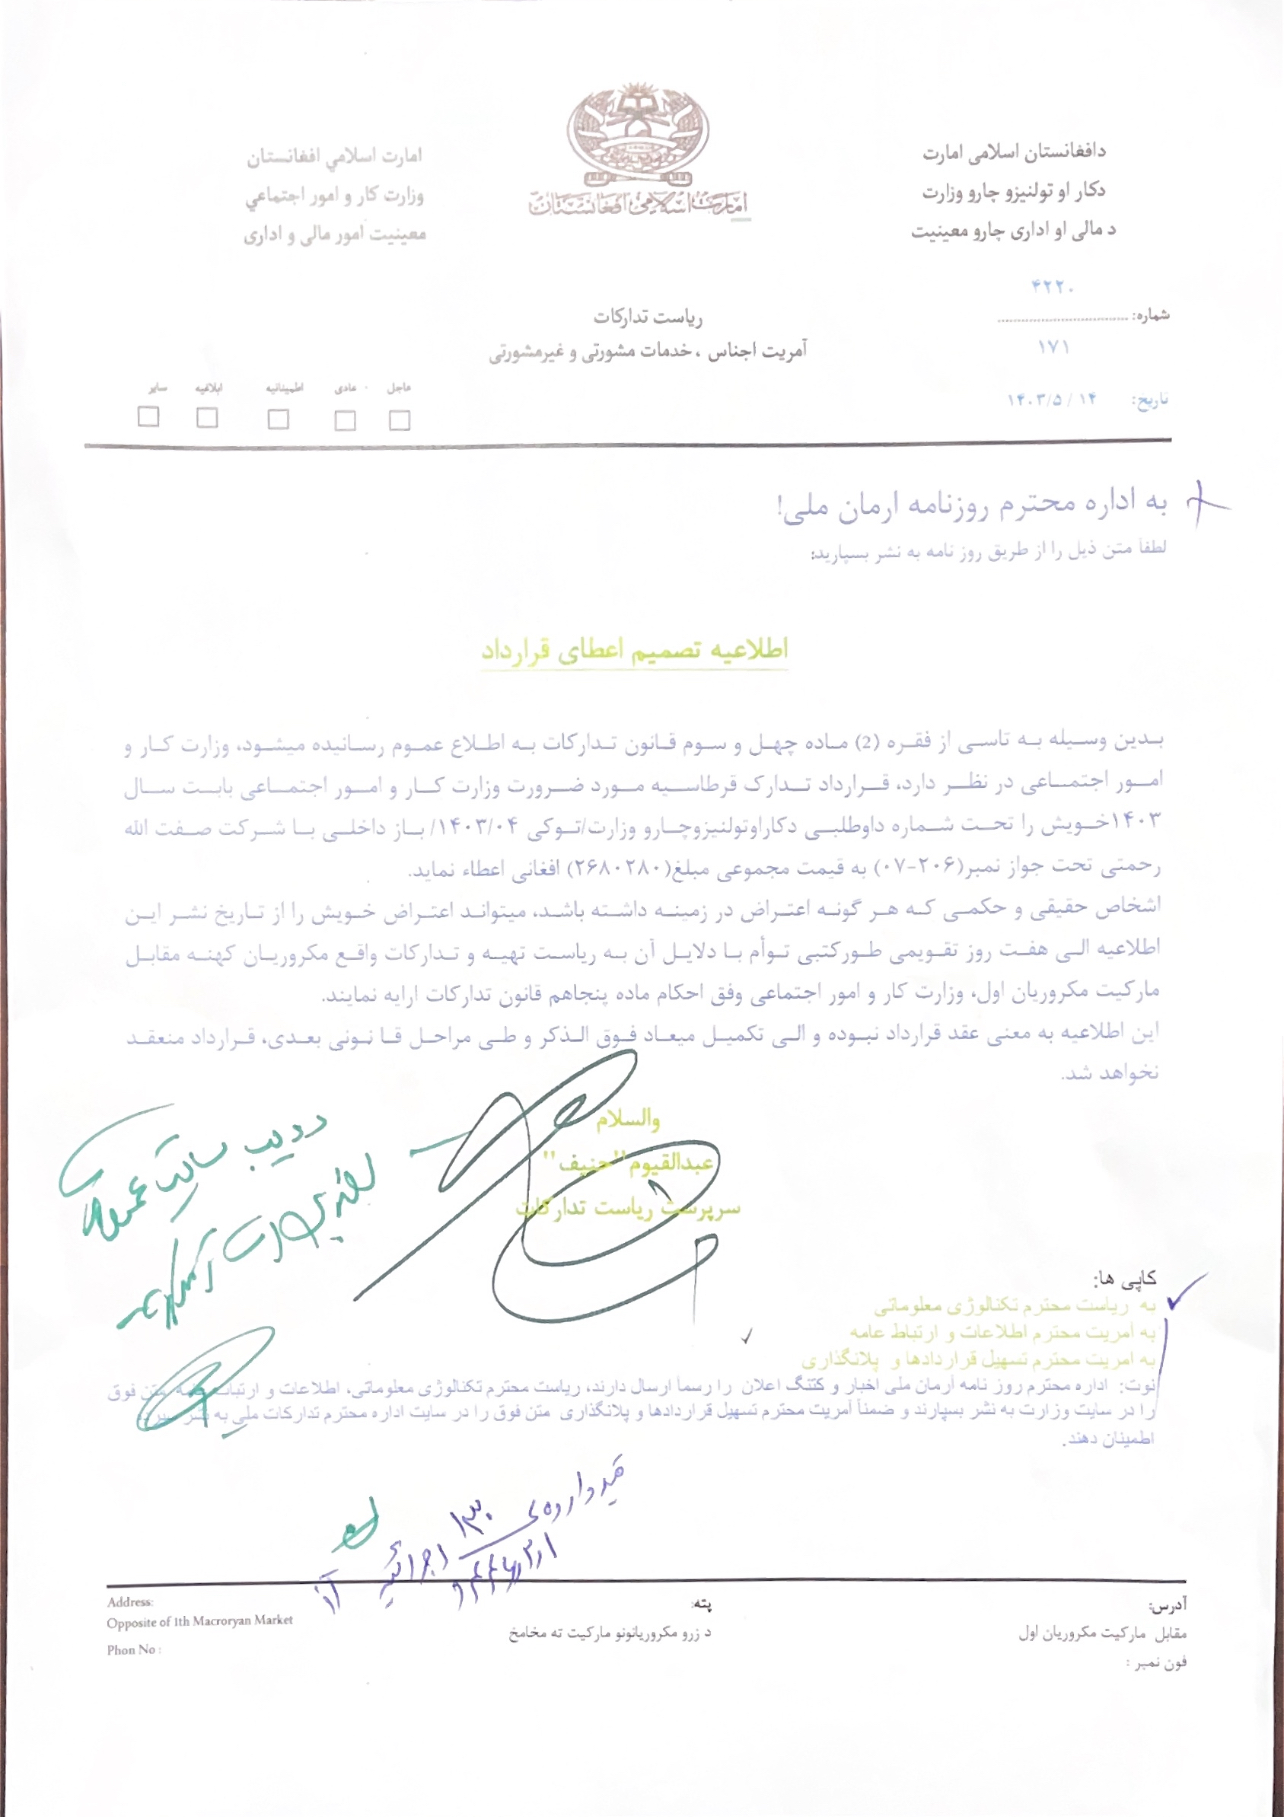 امارت اسلامی افغانستان
دافغانستان اسلامی امارت
دکار او تولنیزو چارو وزارت
د مالی او اداری چارو معینیت
امارت اسلامي افغانستان
وزارت کار و امور اجتماعي
معینیت امور مالی و اداری
۴۲۲۰
شماره: ................................
۱۷۱
تاریخ: ۱۴۰۳/۵/ ۱۴
ریاست تدارکات
آمریت اجناس ، خدمات مشورتی و غیرمشورتی
عاجل عادی اطمینانیه ابلاغیه سایر
به اداره محترم روزنامه ارمان ملی!
لطفاً متن ذیل را از طریق روز نامه به نشر بسپارید:
اطلاعیه تصمیم اعطای قرارداد
بدین وسیله به تاسی از فقره (2) ماده چهل و سوم قانون تدارکات به اطلاع عموم رسانیده میشود، وزارت کار و
امور اجتماعی در نظر دارد، قرارداد تدارک قرطاسیه مورد ضرورت وزارت کار و امور اجتماعی بابت سال
۱۴۰۳خویش را تحت شماره داوطلبی دکاراوتولنیزوچارو وزارت/توکی ۱۴۰۳/۰۴/ باز داخلی با شرکت صفت الله
رحمتی تحت جواز نمبر(۲۰۶-۰۷) به قیمت مجموعی مبلغ(۲۶۸۰۲۸۰) افغانی اعطاء نماید.
اشخاص حقیقی و حکمی که هر گونه اعتراض در زمینه داشته باشد، میتواند اعتراض خویش را از تاریخ نشر این
اطلاعیه الی هفت روز تقویمی طورکتبی توأم با دلایل آن به ریاست تهیه و تدارکات واقع مکروریان کهنه مقابل
مارکیت مکروریان اول، وزارت کار و امور اجتماعی وفق احکام ماده پنجاهم قانون تدارکات ارایه نمایند.
این اطلاعیه به معنی عقد قرارداد نبوده و الی تکمیل میعاد فوق الذکر و طی مراحل قا نونی بعدی، قرارداد منعقد
نخواهد شد.
والسلام
عبدالقیوم"حنیف"
سرپرست ریاست تدارکات
کاپی ها:
به ریاست محترم تکنالوژی معلوماتی
به آمریت محترم اطلاعات و ارتباط عامه
به امریت محترم تسهیل قراردادها و پلانگذاری
نوت: اداره محترم روز نامه آرمان ملی اخبار و کتنگ اعلان را رسماً ارسال دارند، ریاست محترم تکنالوژی معلوماتی، اطلاعات و ارتباط عامه متن فوق
را در سایت وزارت به نشر بسپارند و ضمناً آمریت محترم تسهیل قراردادها و پلانگذاری متن فوق را در سایت اداره محترم تدارکات ملی به نشر
اطمینان دهند.
آدرس:
مقابل مارکیت مکروریان اول
فون نمبر :
پته:
د زرو مکروریانونو مارکیت ته مخامخ
Address:
Opposite of 1th Macroryan Market
Phon No :